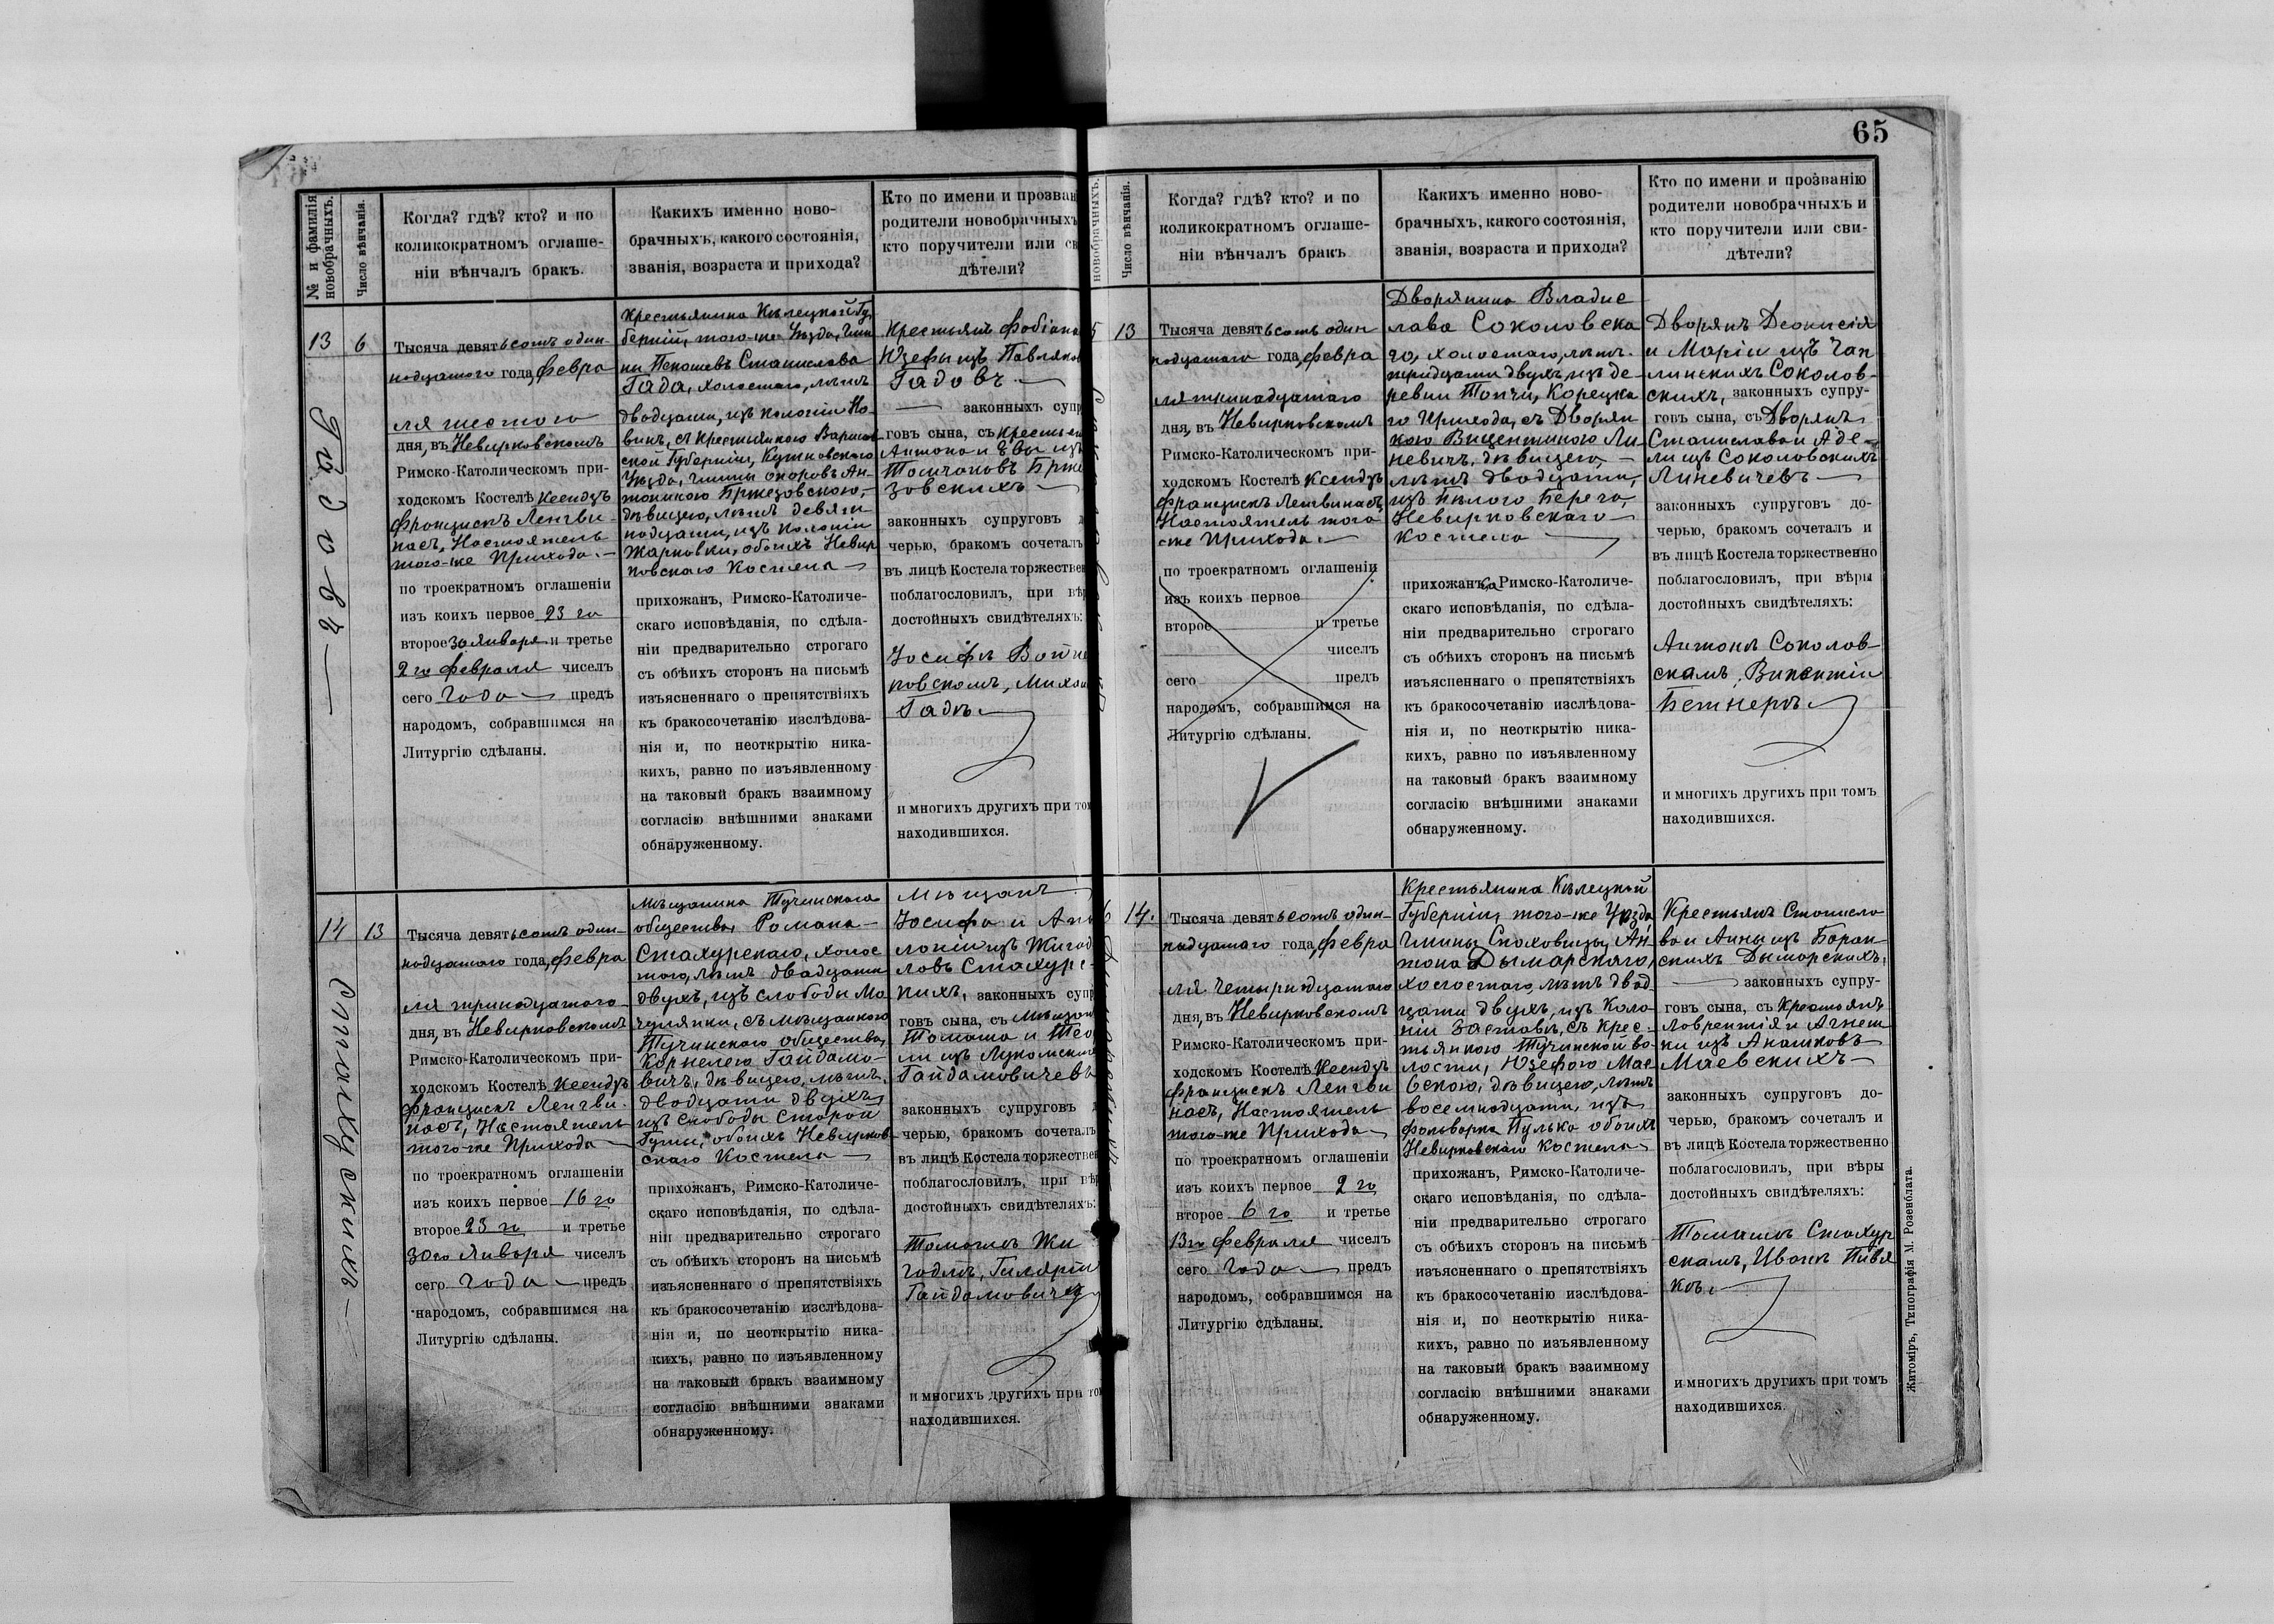 65
№ и фамилія новобрачныхъ.
Число вѣнчанія.
Когда? гдѣ? кто? и по
коликократномъ оглаше-
ніи вѣнчалъ бракъ.
Какихъ именно ново-
брачныхъ, какого состоянія,
званія, возраста и прихода?
Кто по имени и прозван
родители новобрачныхъ
кто поручители или св
дѣтели?
13
6
Гадовъ
Тысяча девятьсотъ один-
надцатого года, февра
ля шестого
дня, въ Невирковскомъ
Римско-Католическомъ при-
ходскомъ Костелѣ Ксендзъ
Францискъ Ленгви-
насъ, Настоятель
того-же Прихода.
по троекратномъ оглашеніи
изъ коихъ первое 23 го
второе 30 Января и третье
2 го февраля чиселъ
сего года предъ
народомъ, собравшимся на
Литургію сдѣланы.
Крестьянина Кѣлецкой Гу-
берніи, того-же Уѣзда, Гми
ны Пекошевъ Станислава
Гада, холостаго, лѣтъ
двадцати, изъ колоніи Но-
винъ, съ крестьянкою Варшав-
ской Губерніи, Кутновскаго
Уѣзда, Гмины Опоровъ Ан-
тониною Бржезовскою,
дѣвицею, лѣтъ девят-
надцати, изъ колоніи
Жарновки, обоихъ Невир
ковскаго Костела
прихожанъ, Римско-Католиче-
скаго исповѣданія, по сдѣла-
ніи предварительно строгаго
съ обѣихъ сторонъ на письмѣ
изъясненнаго о препятствіяхъ
къ бракосочетанію изслѣдова-
нія и, по неоткрытію ника-
кихъ, равно по изъявленному
на таковый бракъ взаимному
согласію внѣшними знаками
обнаруженному.
Крестьянъ Фабіана
Юзефы изъ Павляков
Гадовъ
законныхъ супр
говъ сына, съ Крестьян
Антона и Евы изъ
Томчаковъ Брже
зовскихъ
законныхъ супруговъ д
черью, бракомъ сочеталъ
въ лицѣ Костела торжествен
поблагословил, при вѣр
достойныхъ свидѣтеляхъ:
Іосифъ Войце
ковскомъ, Михаи
Гадъ.
и многихъ другихъ при том
находившихся.
14
13
Стахурскихъ
Тысяча девятьсотъ один-
надцатаго года, февра
ля тринадцатаго
дня, въ Невирковскомъ
Римско-Католическомъ при-
ходскомъ Костелѣ Ксендзъ
Францискъ Ленгви-
насъ, Настоятель
того-же Прихода
по троекратномъ оглашеніи
изъ коихъ первое 16 го
второе 23 го и третье
30 го Января чиселъ
сего года предъ
народомъ, собравшимся на
Литургію сдѣланы.
Мѣщанина Тучинскаго
общества, Романа
Стахурскаго, холос
того, лѣтъ двадцати
двухъ, изъ слободы Мо
чулянки, съ мѣщанкою
Тучинскаго общества,
Корнелею Гайдамо-
вичъ, дѣвицею, лѣтъ
двадцати двухъ
изъ слободы Старой
Гуты, обоихъ Невирков-
скаго Костела
прихожанъ, Римско-Католиче-
скаго исповѣданія, по сдѣла-
ніи предварительно строгаго
съ обѣихъ сторонъ на письмѣ
изъясненнаго о препятствіяхъ
къ бракосочетанію изслѣдова-
нія и, по неоткрытію ника-
кихъ, равно по изъявленному
на таковый бракъ взаимному
согласію внѣшними знаками
обнаруженному.
Мѣщанъ
Іосифа и Апо
лоніи изъ Жигад
ловъ Стахурс-
кихъ, законныхъ супр
говъ сына, съ Мѣщан
Томаша и Тео
ли изъ Лукомски
Гайдамовичевъ
законныхъ супруговъ д
черью, бракомъ сочеталъ
въ лицѣ Костела торжествен
поблагословил, при вѣр
достойныхъ свидѣтеляхъ:
Томашъ Жи
гадлъ, Гиляріи
Гайдамовичъ
и многихъ другихъ при том
находившихся.
новобрачныхъ.
Число вѣнчанія.
Когда? гдѣ? кто? и по
коликократномъ оглаше-
ніи вѣнчалъ бракъ
Какихъ именно ново-
брачныхъ, какого состоянія,
званія, возраста и прихода?
Кто по имени и прозванію
родители новобрачныхъ и
кто поручители или сви-
дѣтели?
5
13
Тысяча девятьсотъ один
надцатаго года, февра
ля тринадцатаго
дня, въ Невирковскомъ
Римско-Католическомъ при-
ходскомъ Костелѣ Ксендзъ
Францискъ Ленгвинасъ,
Настоятель того-
же Прихода.
по троекратномъ оглашеніи
изъ коихъ первое
второе и третье
чиселъ
сего предъ
народомъ, собравшимся на
Литургію сдѣланы.
Дворянина Владис
лава Соколовска
го, холостаго, лѣтъ
тридцати двухъ, изъ де-
ревни Топчи, Корецка
го Прихода, съ Дворян
кою Викентиною Ли-
невичъ, дѣвицею,
лѣтъ двадцати,
изъ Бѣлого Берега,
Невирковскаго
Костела
прихожанъ, Римско-Католиче-
скаго исповѣданія, по сдѣла-
ніи предварительно строгаго
съ обѣихъ сторонъ на письмѣ
изъясненнаго о препятствіяхъ
къ бракосочетанію изслѣдова-
нія и, по неоткрытію ника-
кихъ, равно по изъявленному
на таковый бракъ взаимному
согласію внѣшними знаками
обнаруженному.
Дворянъ Деонисія
и Маріи изъ Чап
линскихъ Соколов-
скихъ, законныхъ супру-
говъ сына, съ Дворянъ
Станислава и Аде-
ли изъ Соколовскихъ
Линевичевъ
законныхъ супруговъ до-
черью, бракомъ сочеталъ и
въ лицѣ Костела торжественно
поблагословил, при вѣры
достойныхъ свидѣтеляхъ:
Антонъ Соколов-
скамъ, Викентіи
Бетнеръ.
и многихъ другихъ при томъ
находившихся.
6
14.
Тысяча девятьсотъ один-
надцатаго года, февра
ля Четырнадцатаго
дня, въ Невирковскомъ
Римско-Католическомъ при-
ходскомъ Костелѣ Ксендзъ
Францискъ Ленгви
насъ, Настоятель
того-же Прихода
по троекратномъ оглашеніи
изъ коихъ первое 2 го
второе 6 го и третье
13 го февраля чиселъ
сего года предъ
народомъ, собравшимся на
Литургію сдѣланы.
Крестьянина Кѣлецкой
Губерніи, того-же Уѣзда,
Гмины Снохо­вицы, Ан-
тона Дымарскаго,
холостаго, лѣтъ двад
цати двухъ, изъ Коло
ніи Заставя, съ Крес-
тьянкою Тучинской во-
лости, Юзефою Мае
вскою, дѣвицею, лѣтъ
восемнадцати, изъ
фольварка Пулька обоихъ
Невирковскаго Костела
прихожанъ, Римско-Католиче-
скаго исповѣданія, по сдѣла-
ніи предварительно строгаго
съ обѣихъ сторонъ на письмѣ
изъясненнаго о препятствіяхъ
къ бракосочетанію изслѣдова-
нія и, по неоткрытію ника-
кихъ, равно по изъявленному
на таковый бракъ взаимному
согласію внѣшними знаками
обнаруженному.
Крестьянъ Станисла
ва и Анны изъ Боран
скихъ Дымарскихъ,
законныхъ супру-
говъ сына, съ Крестьянъ
Лаврентія и Агнеш
ки изъ Анашковъ
Маевскихъ
законныхъ супруговъ до-
черью, бракомъ сочеталъ и
въ лицѣ Костела торжественно
поблагословил, при вѣры
достойныхъ свидѣтеляхъ:
Томашъ Стахур
скамъ, Иванъ Пивя
къ.
и многихъ другихъ при томъ
находившихся.
Житоміръ, Типографія М. Розенблата.